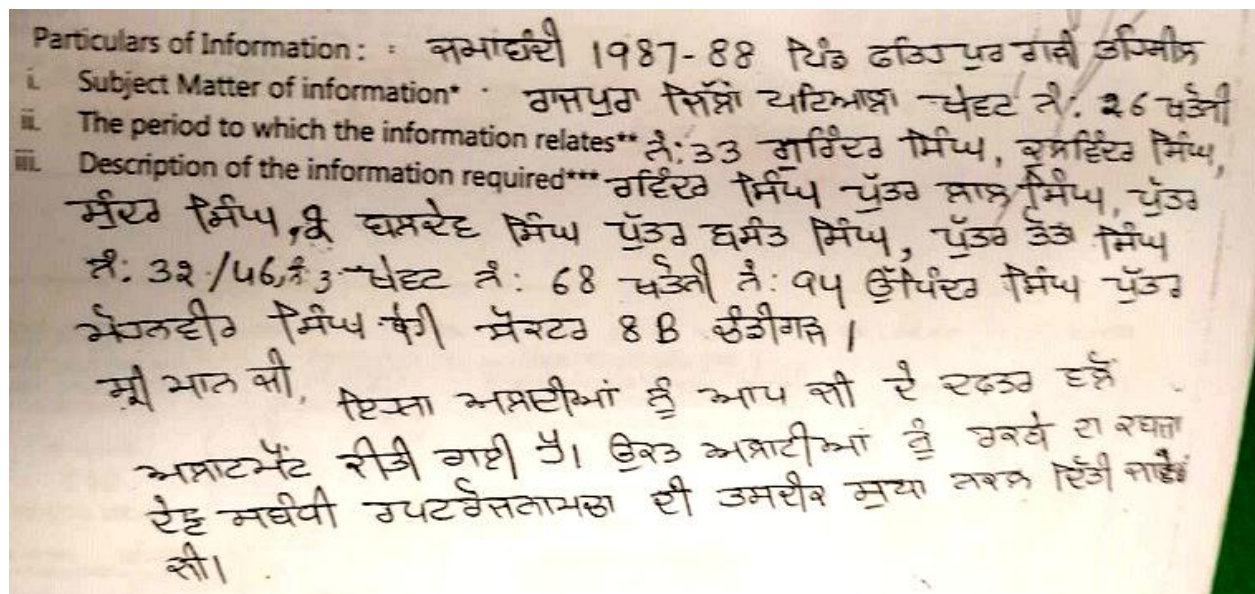 Particulars of Information : : ਜਮਾਂਬੰਦੀ 1987-88 ਪਿੰਡ ਫਤਿਹਪੁਰ ਗੜੀ ਤਹਿਸੀਲ
i. Subject Matter of information* ਰਾਜਪੁਰਾ ਜਿੱਲਾ ਪਟਿਆਲਾ ਖੇਵਟ ਨੰ: 26 ਖਤੌਨੀ
ii. The period to which the information relates** ਨੰ: 33 ਗੁਰਿੰਦਰ ਸਿੰਘ, ਕੁਲਵਿੰਦਰ ਸਿੰਘ,
iii. Description of the information required*** ਰਵਿੰਦਰ ਸਿੰਘ ਪੁੱਤਰ ਲਾਲ ਸਿੰਘ, ਪੁੱਤਰ
ਸੁੰਦਰ ਸਿੰਘ, ਬਲਦੇਵ ਸਿੰਘ ਪੁੱਤਰ ਬਸੰਤ ਸਿੰਘ, ਪੁੱਤਰ ਤੋਤਾ ਸਿੰਘ
ਨੰ: 32/46, ਨੰ 3 ਖੇਵਟ ਨੰ: 68 ਖਤੌਨੀ ਨੰ: 94 ਉਪਿੰਦਰ ਸਿੰਘ ਪੁੱਤਰ
ਮੋਹਨਵੀਰ ਸਿੰਘ ਸੈਕਟਰ 8 B ਚੰਡੀਗੜ।
ਸ੍ਰੀ ਮਾਨ ਜੀ, ਇਨਾ ਅਲਾਟੀਆਂ ਨੂੰ ਆਪ ਜੀ ਦੇ ਦਫਤਰ ਵਲੋਂ
ਅਲਾਟਮੈਂਟ ਕੀਤੀ ਗਈ ਹੈ। ਉਕਤ ਅਲਾਟੀਆਂ ਨੂੰ ਰਕਬੇ ਦਾ ਕਬਜਾ
ਦੇਣ ਸਬੰਧੀ ਰਪਟਰੋਜਨਾਮਚਾ ਦੀ ਤਸਦੀਕ ਸੁਧਾ ਨਕਲ ਦਿੱਤੀ ਜਾਵੇ
ਜੀ।